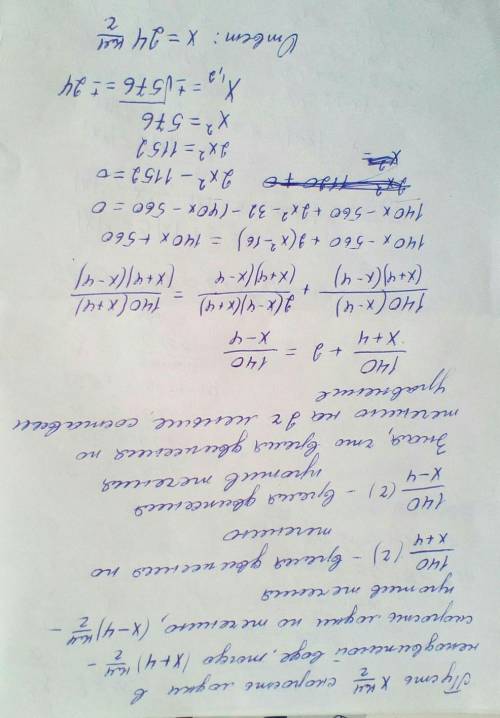 Пусть x км/ч скорость лодки в
неподвижной воде, тогда (x+4) км/ч –
скорость лодки по течению, (x-4) км/ч –
против течения
140/(x+4) (ч) – время движения по
течению
140/(x-4) (ч) – время движения
против течения
Зная, что время движения по
течению на 2 ч меньше, составим
уравнение
140/(x+4) + 2 = 140/(x-4)
140(x-4)/((x+4)(x-4)) + 2(x-4)(x+4)/((x+4)(x-4) = 140(x+4)/((x+4)(x-4))
140x - 560 + 2(x²-16) = 140x + 560
140x - 560 + 2x² - 32 - 140x - 560 = 0
2x² - 1152 = 0
2x² = 1152
x² = 576
x1,2 = ±√576 = ±24
Ответ: x = 24 км/ч